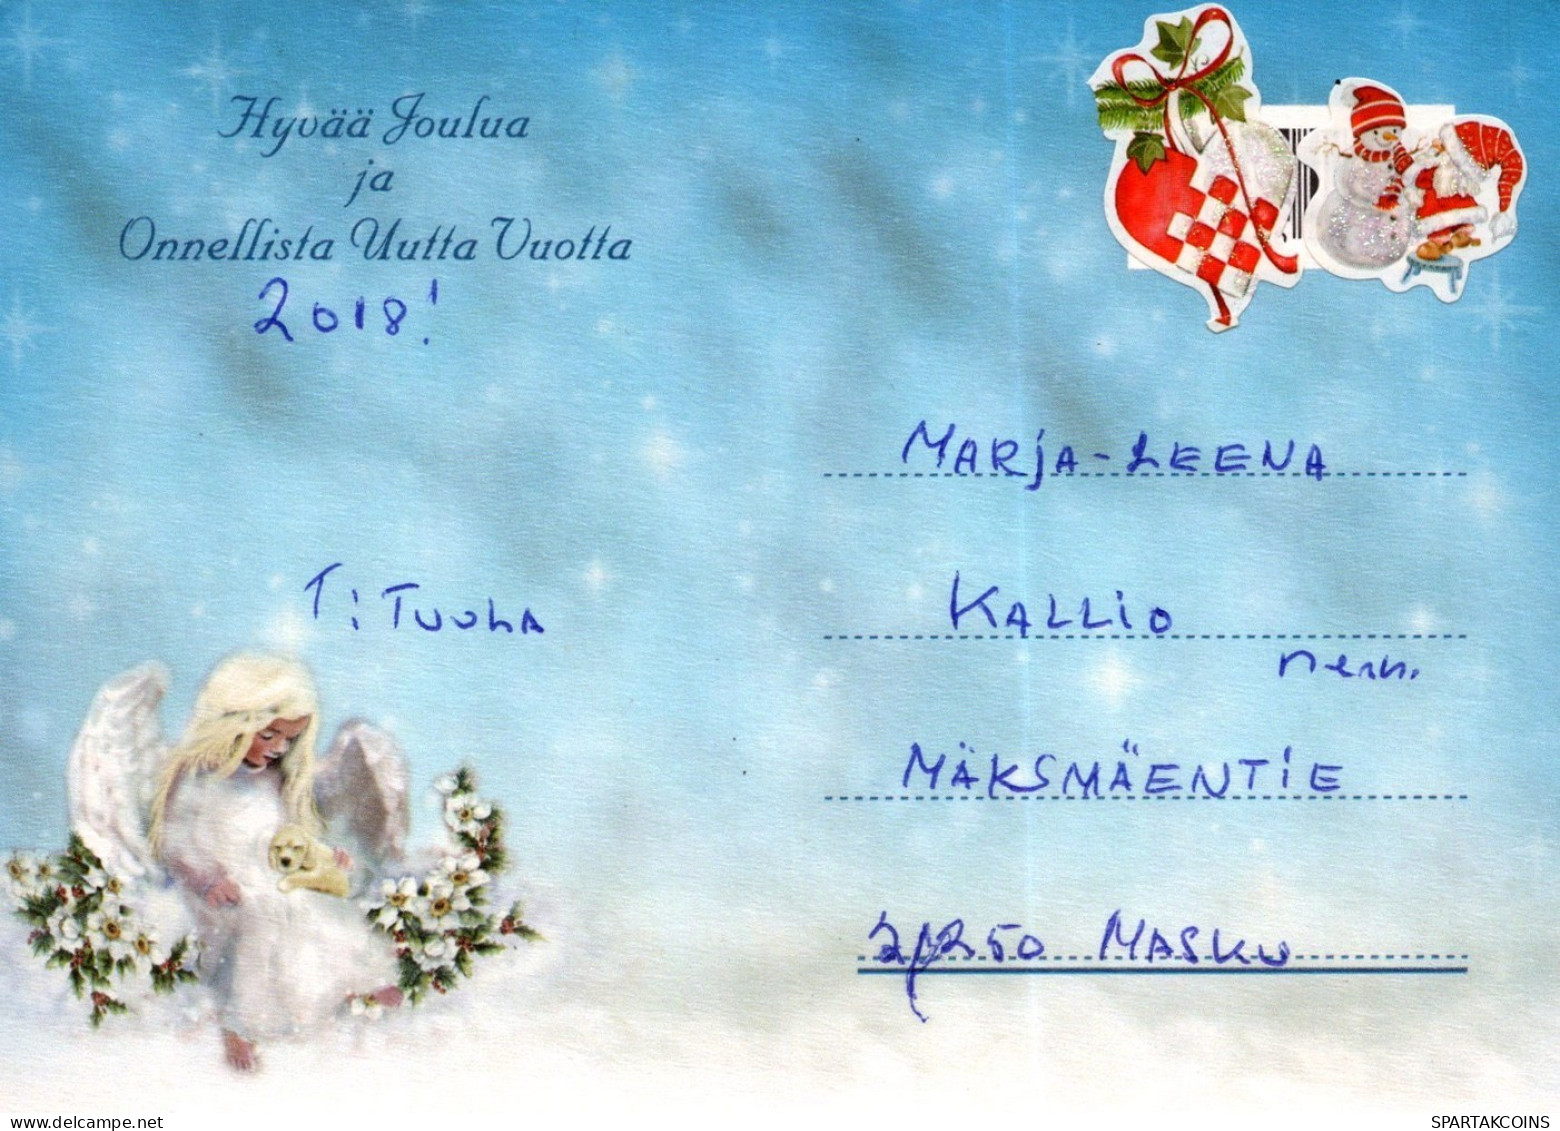 Hyvää Joulua
ja
Onnellista Uutta Vuotta
2018!
T: TUULA
MARJA-LEENA
KALLIO
MÄKSMÄENTIE
21250 MASKU
delcampe.net
SPARTAKCOINS